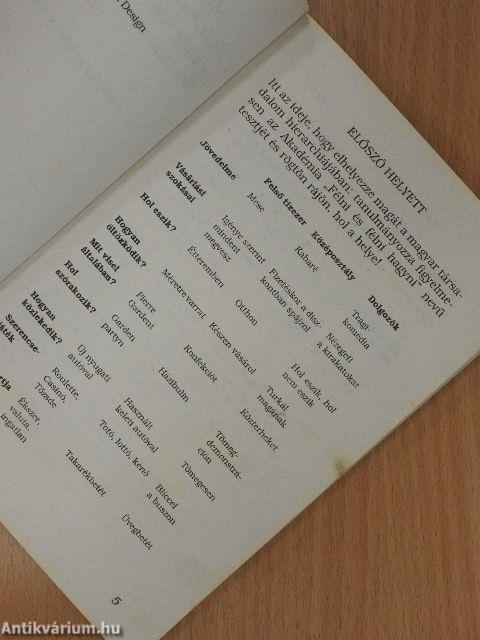 Design
ELŐSZÓ HELYETT
Itt az ideje, hogy elhelyezze magát a magyar társa-
dalom hierarchiájában: tanulmányozza figyelme-
sen az Akadémia „Félni és félni hagyni" nevű
tesztjét és rögtön rájön, hol a helye!
Felső tízezer Középosztály Dolgozók
Jövedelme Mese Kabaré Tragi-
komédia
Vásárlási
szokásai Igénye szerint
mindent
megvesz Fizetéskor a disz-
kontban spájzol Nézegeti
a kirakatokat
Hol eszik? Étteremben Otthon Hol eszik, hol
nem eszik
Hogyan
öltözködik? Méretre varrat Készen vásárol Turkál
magának
Mit visel
általában? Pierre
Gardent Konfekciót Közterheket
Hol
szórakozik? Garden
partyn Házibulin Tömeg-
demonstrá-
ción
Hogyan
közlekedik? Új nyugati
autóval Használt
keleti autóval Tömegesen
Szerencse-
játék Roulette,
Casinó,
Tőzsde Totó, lottó, kenó Bliccel
a buszon
Ékszer,
valuta,
ingatlan Takarékbetét Üvegbetét
5
Antikvárium.hu